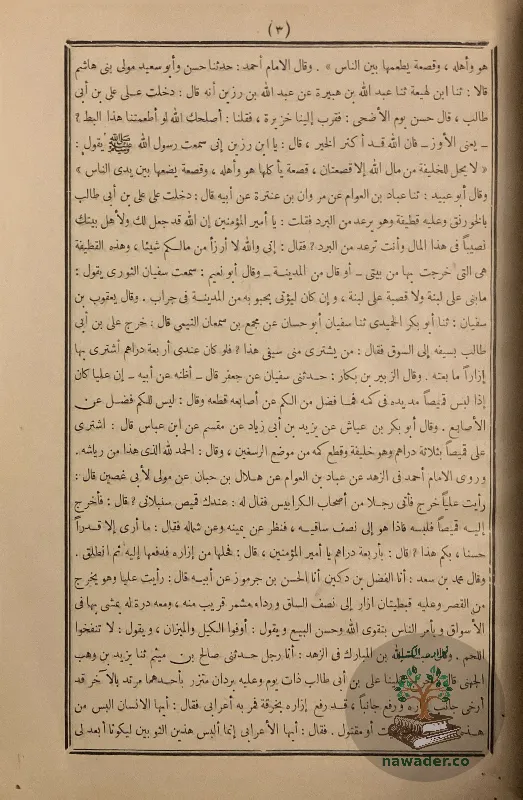 (٣)
هو وأهله ، وقصعة يطعمها بين الناس » . وقال الامام أحمد : حدثنا حسن وأبو سعيد مولى بنى هاشم
قالا : ثنا ابن لهيعة ثنا عبد الله بن هبيرة عن عبد الله بن رزين أنه قال : دخلت على على بن أبى
طالب ، قال حسن يوم الأضحى : فقرب إلينا خزيرة ، فقلنا : أصلحك الله لو أطعمتنا هذا البط ؟
ـ يعنى الأوز ـ فان الله قد أكثر الخير ، قال : يا ابن رزين إنى سمعت رسول الله ﷺ يقول :
« لا يحل للخليفة من مال الله إلا قصعتان ، قصعة يأكلها هو وأهله ، وقصعة يضعها بين يدى الناس »
وقال أبو عبيد : ثنا عباد بن العوام عن مروان بن عنترة عن أبيه قال : دخلت على على بن أبى طالب
بالخورنق وعليه قطيفة وهو يرعد من البرد فقلت : يا أمير المؤمنين إن الله قد جعل لك ولأهل بيتك
نصيباً فى هذا المال وأنت ترعد من البرد ؟ فقال : إنى والله لا أرزأ من مالكم شيئا ، وهذه القطيفة
هى التى خرجت بها من بيتى ـ أو قال من المدينة ـ وقال أبو نعيم : سمعت سفيان الثورى يقول :
مابنى على لبنة ولا قصبة على لبنة ، وإن كان ليؤتى بحبوبه من المدينة فى جراب . وقال يعقوب بن
سفيان : ثنا أبو بكر الحميدى ثنا سفيان أبو حسان عن مجمع بن سمعان التيمى قال : خرج على بن أبى
طالب بسيفه إلى السوق فقال : من يشترى منى سيفى هذا ؟ فلو كان عندى أربعة دراهم أشترى بها
إزاراً ما بعته . وقال الزبير بن بكار : حدثنى سفيان عن جعفر قال ـ أظنه عن أبيه ـ إن عليا كان
إذا لبس قميصاً مد يده فى كمه فما فضل من الكم عن أصابعه قطعه وقال : ليس للكم فضل عن
الأصابع . وقال أبو بكر بن عياش عن يزيد بن أبى زياد عن مقسم عن ابن عباس قال : اشترى
على قميصاً بثلاثة دراهم وهو خليفة وقطع كمه من موضع الرسغين ، وقال : الحمد لله الذى هذا من رياشه .
وروى الامام أحمد فى الزهد عن عباد بن العوام عن هلال بن حبان عن مولى لأبى غصين قال :
رأيت علياً خرج فأتى رجلا من أصحاب الكرابيس فقال له : عندك قميص سنبلانى ؟ قال : فأخرج
إليه قميصاً فلبسه فاذا هو إلى نصف ساقيه ، فنظر عن يمينه وعن شماله فقال : ما أرى إلا قدراً
حسنا ، بكم هذا ؟ قال : بأربعة دراهم يا أمير المؤمنين ، قال : فحلها من إزاره فدفعها إليه ثم انطلق .
وقال محمد بن سعد : أنا الفضل بن دكين أنا الحسن بن جرموز عن أبيه قال : رأيت عليا وهو يخرج
من القصر وعليه قبطيتان ازار إلى نصف الساق ورداء مشمر قريب منه ، ومعه درة له يمشى بها فى
الأسواق ويأمر الناس بتقوى الله وحسن البيع ويقول : أوفوا الكيل والميزان ، ويقول : لا تنفخوا
اللحم . الله بن المبارك فى الزهد : أنا رجل حدثنى صالح بن ميثم ثنا يزيد بن وهب
الجهنى علينا على بن أبى طالب ذات يوم وعليه بردان متزر بأحدهما مرتد بالآخر قد
أرخى جانب ورفع جانباً ، قد رفع إزاره بخرقة فمر به أعرابى فقال : أيها الانسان البس من
أو مقتول . فقال : أيها الأعرابى إنما ألبس هذين الثوبين ليكونا أبعد لى
نوادر الكتب
nawader.co